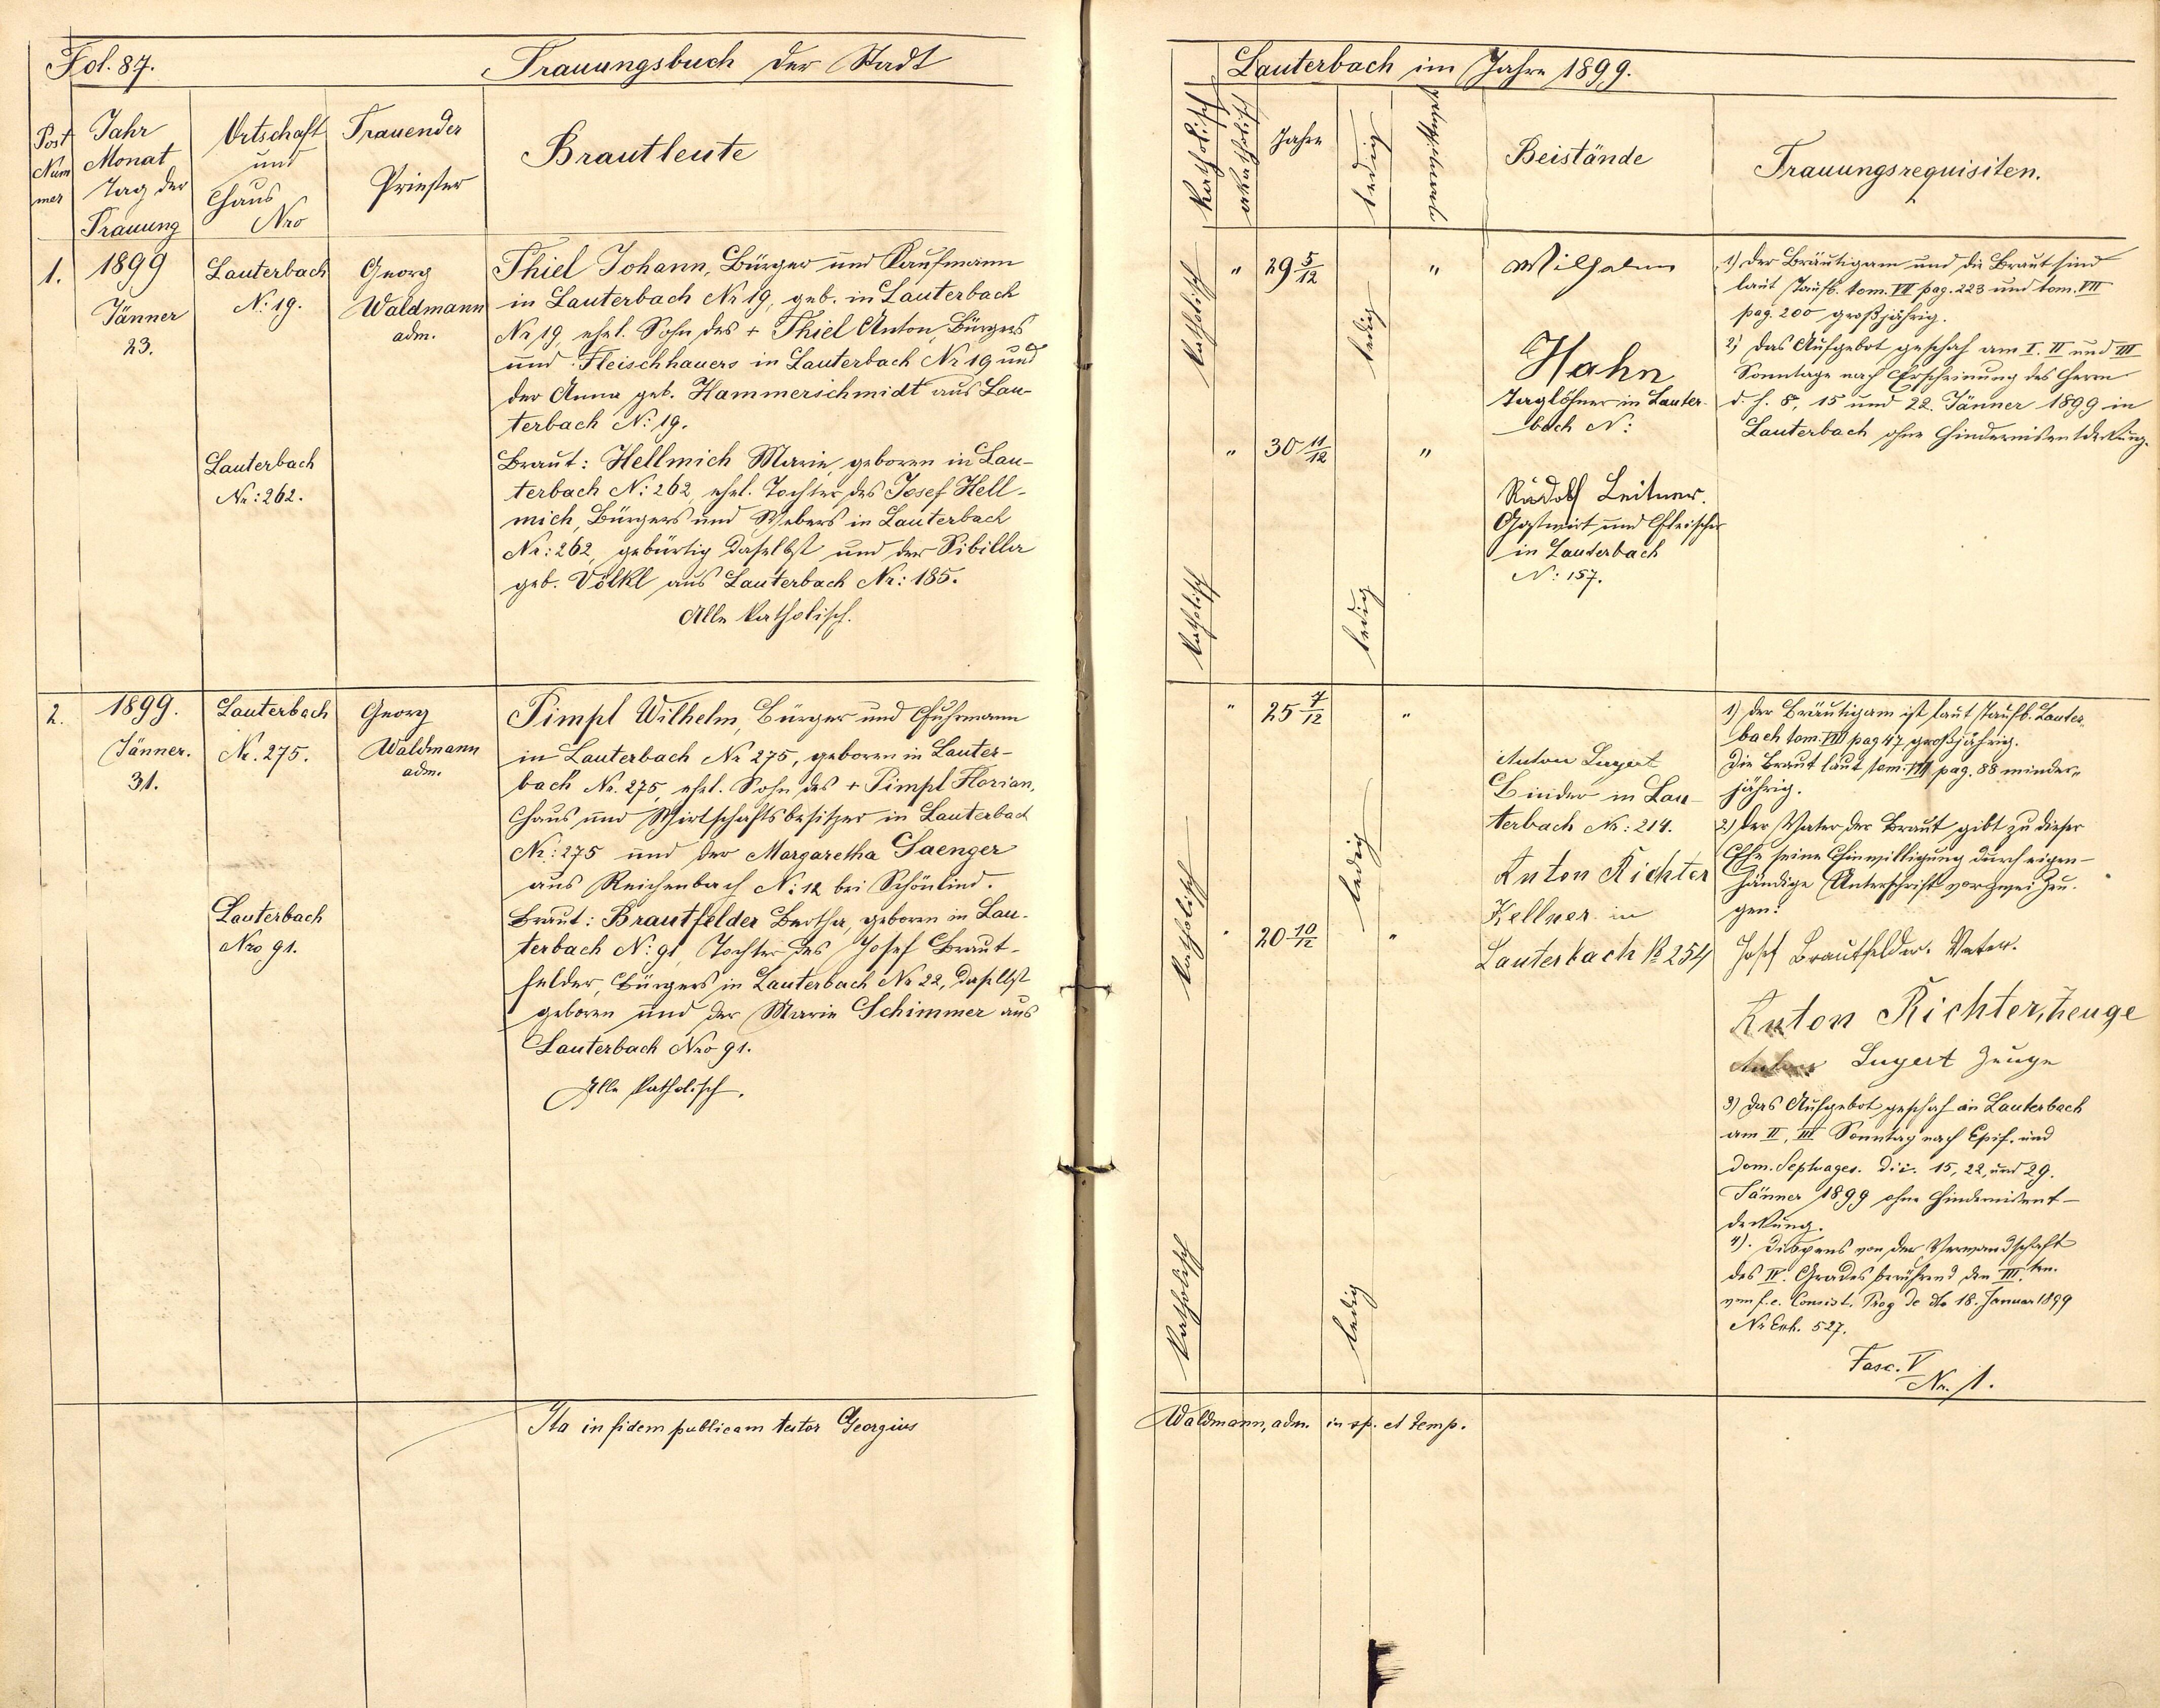 Fol. 87.
Trauungsbuch der Stadt
Post
Num
mer
Jahr
Monat
Tag der
Trauung
Ortschaft
und
Haus
Nro
Trauender
Priester
Brautleute
1.
1899
Jänner
23.
Lauterbach
N: 19.
Georg
Waldmann
adm.
Thiel Johann, Bürger und Kaufmann
in Lauterbach Nr 19, geb. in Lauterbach
Nr 19, ehel. Sohn des + Thiel Anton, Bürgers
und Fleischhauers in Lauterbach Nr 19 und
der Anna geb. Hammerschmidt aus Lau-
terbach N: 19.
Lauterbach
Nr: 262.
Braut: Hellmich Marie, geboren in Lau-
terbach N: 262, ehel. Tochter des Josef Hell-
mich, Bürgers und Webers in Lauterbach
Nr: 262, gebürtig daselbst und der Sibilla
geb. Völkl aus Lauterbach Nr: 185.
Alle katholisch.
2.
1899.
Jänner.
31.
Lauterbach
Nr. 275.
Georg
Waldmann
adm.
Pimpl Wilhelm, Bürger und Fuhrmann
in Lauterbach Nr 275, geboren in Lauter-
bach Nr. 275, ehel. Sohn des + Pimpl Florian,
Haus und Wirtschaftsbesitzer in Lauterbach
Nr: 275 und der Margaretha Saenger
aus Reichenbach N: 12 bei Schönlind.
Lauterbach
Nro 91.
Braut: Brautfelder Bertha, geboren in Lau-
terbach N: 91, Tochter des Josef Braut-
felder, Bürgers in Lauterbach Nr 22, daselbst
geboren und der Marie Schimmer aus
Lauterbach Nro 91.
Alle katholisch.
Ita in fidem publicam testor Georgius
Lauterbach im Jahre 1899.
Katholisch
akatholisch
Jahre
ledig
Beistände
Trauungsrequisiten.
katholisch
"
29 5/12
ledig
"
Wilhelm
Hahn
Taglöhner in Lauter-
bach N:
katholisch
"
30 11/12
ledig
"
Rudolf Leitner.
Gastwirt und Fleischer
in Lauterbach
N: 157.
1) Der Bräutigam und die Braut sind
laut Taufb. tom. VII pag. 223 und tom. VII
pag. 200 großjährig.
2) Das Aufgebot geschah am I. II und III
Sonntage nach Erscheinung des Herrn
d. h. 8, 15 und 22. Jänner 1899 in
Lauterbach ohne Hindernisentdeckung.
katholisch
"
25 7/12
ledig
"
Anton Lugert
Binder in Lau-
terbach Nr: 214.
katholisch
"
20 10/12
ledig
"
Anton Richter
Kellner in
Lauterbach N 254
1) Der Bräutigam ist laut Taufb. Lauter-
bach tom. VIII pag 47 großjährig.
Die Braut laut tom. VIII pag. 88 minder-
jährig.
2) Der Vater der Braut gibt zu dieser
Ehe seine Einwilligung durch eigen-
händige Unterschrift vor zwei Zeu-
gen:
Josef Brautfelder. Vater.
Anton Richter, Zeuge
Anton Lugert Zeuge
3) Das Aufgebot geschah in Lauterbach
am II, III Sonntag nach Epif. und
dom. Septuages. d. i. 15, 22, und 29.
Jänner 1899 ohne Hindernisent-
deckung.
4). Dispens von der Verwandschaft
des IV. Grades berührend den III. ten.
vom f. e. Consist. Prag de dto 18. Januar 1899
Nr Exh. 527.
Fasc. V
Nr. 1.
Waldmann, adm. in sp. et temp.